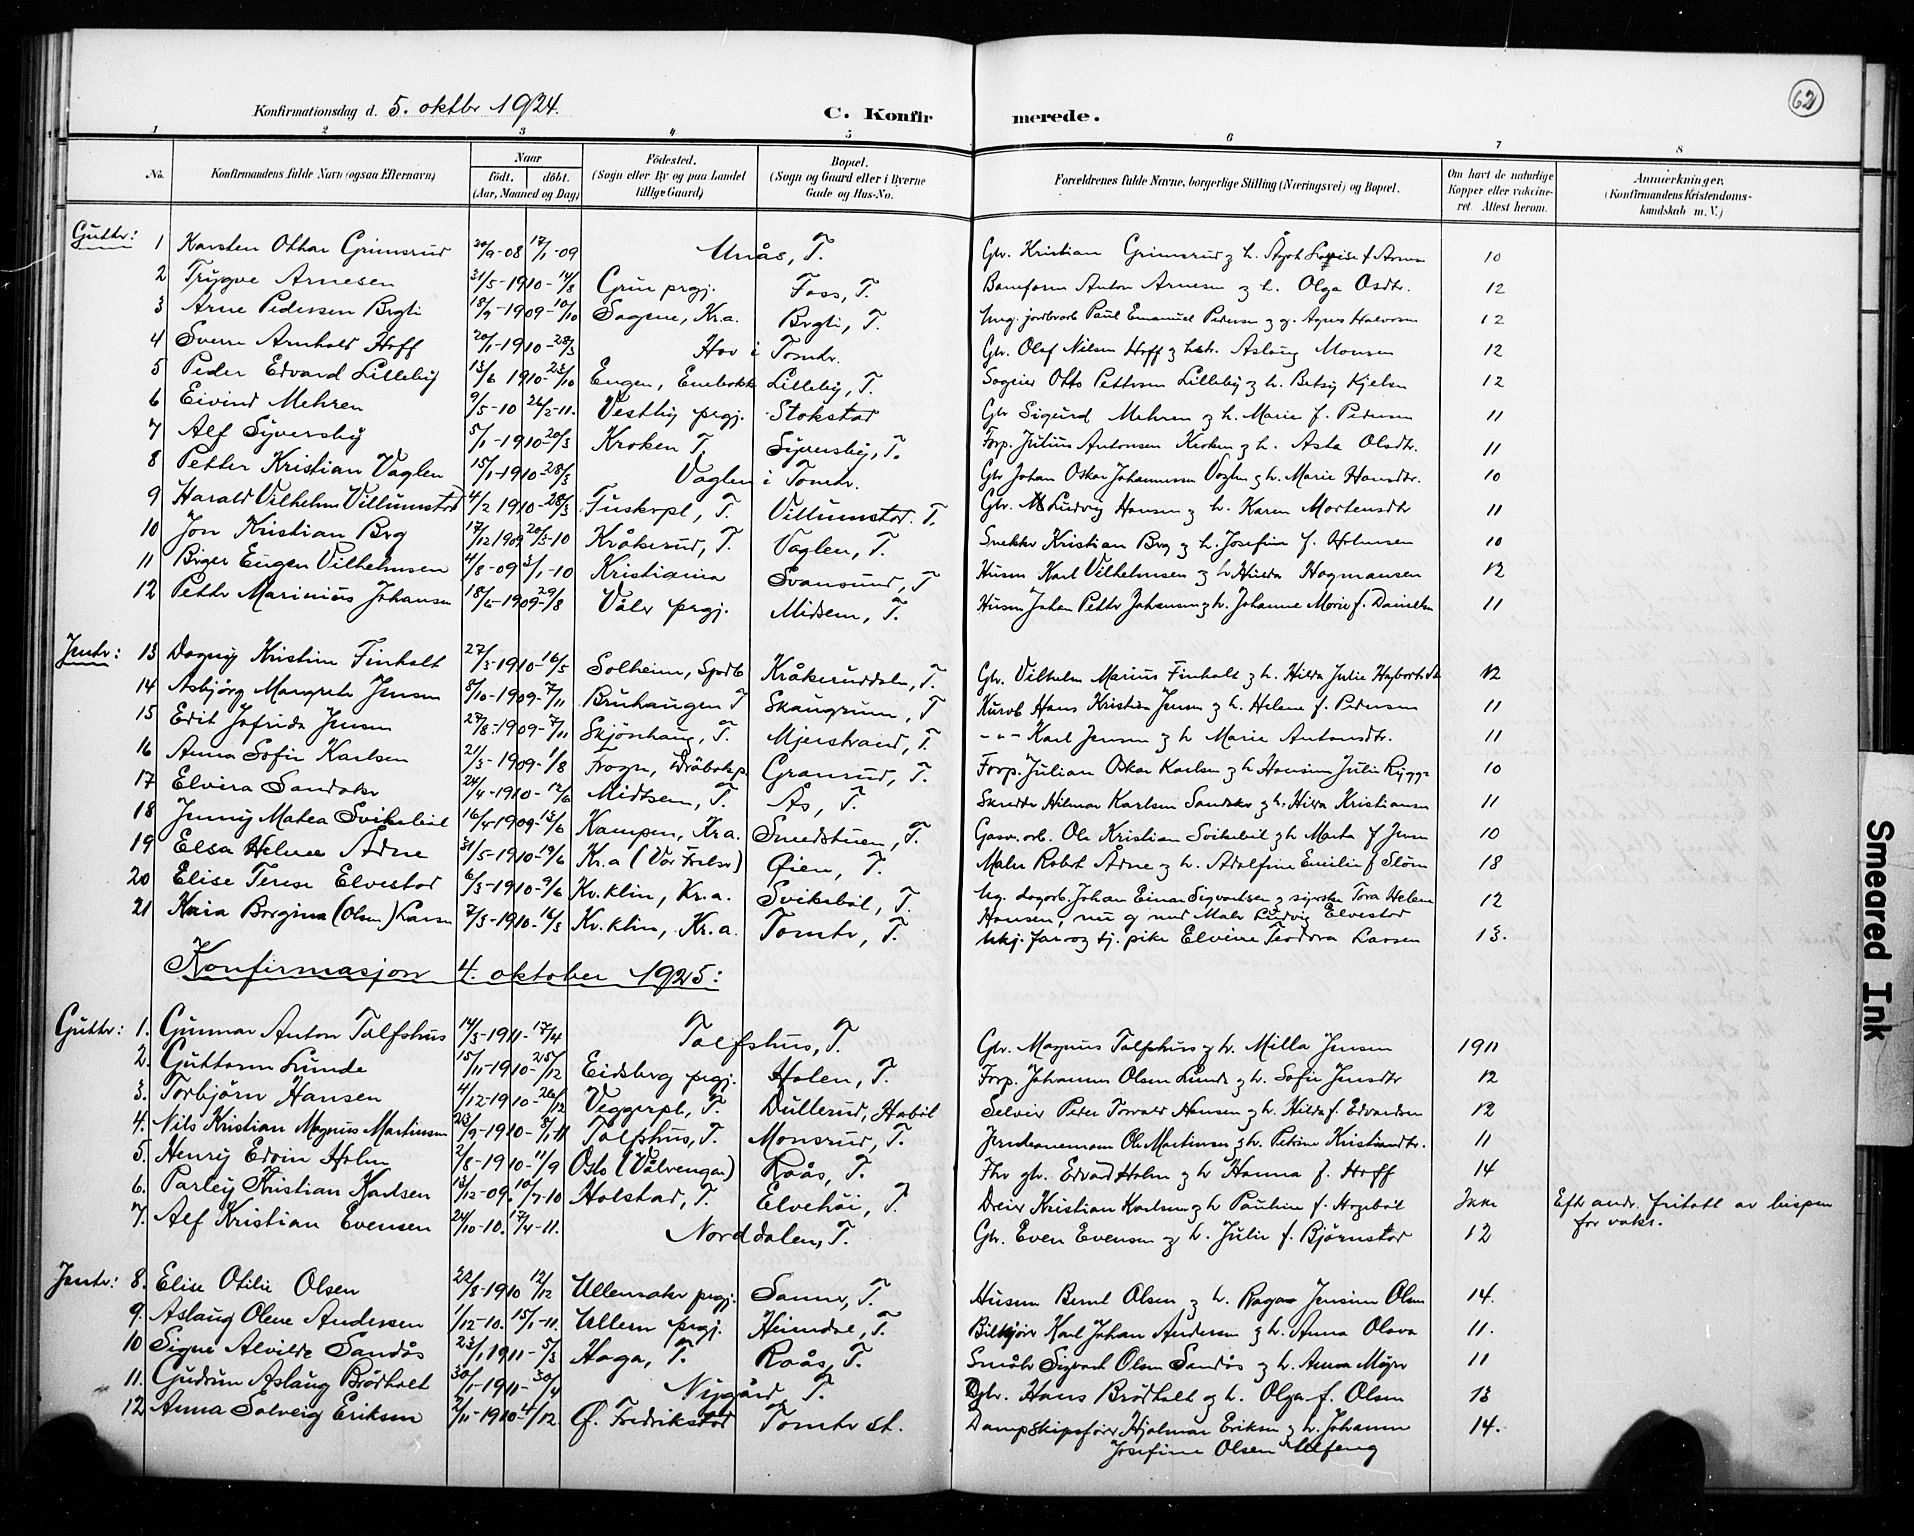 62
Konfirmationsdag d. 5. oktbr 1924.
C. Konfirmerede.
1 2 3 4 5 6 7 8
No. Konfirmandens fulde Navn (ogsaa Efternavn) Naar födt. döbt. (Aar, Maaned og Dag) Födested. (Sogn eller By og paa Landet tillige Gaard) Bopæl. (Sogn og Gaard eller i Byerne Gade og Hus-No. Forældrenes fulde Navne, borgerlige Stilling (Næringsvei) og Bopæl. Om havt de naturlige Kopper eller vakcineret. Attest herom. Anmærkninger. (Konfirmandens Kristendomskundskab m. V.)
Gutter: 1 Karsten Ottar Grimsrud 20/9-08 17/1-09 Unås, T. Gbr. Kristian Grimsrud og h. 10
2 Trygve Arnesen 31/5-1910-14/8 Grue prgj. Foss, T. Anton Arnesen og h. Olga Osdtr. 12
3 Arne Pedersen Brgli 18/9-1909-10/10 Sagene, Kr.a. Brgli, T. Ung. jordbrarb Paul Emanuel Pedersen og g. Agnes Halvorsen 12
4 Sverre Arnhold Hoff 20/1-1910-28/3 Hov i Tomtr. Gbr. Olaf Nilsen Hoff og hstr. Aslaug Monsen 12
5 Peder Edvard Lilleby 13/6 1910-23/10 Engen, Enebakk Lilleby, T. Sageier Otto Pettersen Lilleby og h. Betsy Kjelsen 12
6 Eivind Mehren 9/5-10 26/2-11. Vestby prgj. Stokstad Gbr Sigurd Mehren og h. Marie f. Pedersen 11
7 Alf Syversby 5/1-1910-20/3 Kroken T. Syversby, T. Forp. Julius Antonsen Kroken og h. Asta Olsdtr. 11
8 Petter Kristian Vaglen 15/1-1910-28/3 Vaglen i Tomtr. Gbr Johan Oskar Johannessen Vaglen og h. Marie Hansdtr. 10
9 Harald Vilhelm Villumstad 4/2 1910-28/3 Tuskerpl, T. Villumstad. T. Gbr. Ludvig Hansen og h. Karen Mortensdtr 11
10 Jon Kristian Brg 17/12 1909 20/3-10 Kråkerud, T. Vaglen, T. Snekker Kristian Brg og h. Josefine f. Holmsen 10
11 Birger Eugen Vilhelmsen 4/8-09 3/1-10 Kristiania Svansund, T Husm Karl Vilhelmsen og h Hilda Hagmansen 12
12 Petter Marinius Johansen 18/6-1909-29/8 Våler prgj. Midsem, T. Husm Johan Petter Johansen og h. Johanne Marie f. Danielsen 11
Jenter: 13 Dagny Kristine Finholt 27/3-1910-16/5 Solheim, Spydb Kråkeruddalen, T. Gbr. Vilhelm Marius Finholt og h. Hilda Julie 12
14 Asbjörg Margrete Jensen 5/10-1909-7/11 Bruhaugen T Skaugrum, T Kurvb Hans Kristian Jensen og h. Helene f. Pedersen 11
15 Edit Jofrida Jensen 27/8-1909-7/11 Skjönhaug, T. Mjerstrand, T. - " - Karl Jensen og h Marie Antonsdtr. 11
16 Anna Sofie Karlsen 21/3-1909-1/8 Frogn, Dröbakp. Gransrud, T. Forp. Julian Oskar Karlsen og h Hansine Julie Rygge 10
17 Elvira Sandaker 24/4-1910-12/6 Midtsem, T. Ås, T. Skredder Hilmar Karlsen Sandaker og h. Hilda Kristiansen 11
18 Jenny Matea Svikebøl 16/4-1909-13/6 Kampen, Kr.a. Smedstuen, T. Gasv.arb. Ole Kristian Svikebøl og h Marta f Jensen 10
19 Elsa Helene Ådne 31/5-1910-19/6 Kr.a (Vår Frelser) Øien, T. Maler Robert Ådne og h. Adolfine Emilie f Strøm 18
20 Elise Terese Elvestad 6/3-1910-9/6 Kv.klin, Kr.a. Svikebøl, T. Ug. dagarb. Johan Einar Sigvartsen og syerske Tora Helene
Hansen, nu g med Maler Ludvig Elvestad 12
21 Kaia Borgina (Olsen) Larsen 7/3-1910-16/5 Kv.klin, Kr.a. Tomtr, T. Ukj. far og tj. pike Elvine Teodora Larsen 13.
Konfirmasjon 4. oktober 1925:
Gutter: 1. Gunnar Anton Tolfshus 14/3-1911-17/4 Tolfshus, T. Gbr. Magnus Tolfshus og h. Milla Jensen 1911
2. Guttorm Lunde 15/11-1910-25/12 Eidsberg prgj. Holen, T. Forp. Johannes Olsen Lunde og h. Sofie Jensdtr 12
3. Torbjørn Hansen 4/12-1910-26/12 Veggerpl, T. Dullerud, Hobøl Selveier Peder Torvald Hansen og h. Hilda f. Edvardsen 12
4. Nils Kristian Magnus Martinsen 23/9-1910-8/1-11 Tolfshus, T. Monsrud, T. Jernbanemann Ole Martinsen og h. Petrine Kristiansdtr. 11
5. Henry Edvin Holm 2/8-1910-11/9 Oslo (Vålerengen) Roås, T. Fhv gbr. Edvard Holm og h Hanna f. Hoff 14
6. Parley Kristian Karlsen 13/12-09. 10/7-10 Holstad, T. Elvehöi, T. Dreier Kristian Karlsen og h Pauline f. Hogebøl Ikke Eftr andr. fritatt av bispen
for vaks.
7. Alf Kristian Evensen 24/10-10. 17/4-11. Norddalen, T. Gbr. Even Evensen og h. Julie f. Bjørnstad 12
Jenter: 8. Elise Otilie Olsen 22/8-1910 12/12 Ullensaker prgj. Sanner, T. Husm Bernt Olsen og h. Ragna Jensine Olsen 14.
9. Aslaug Olene Andersen 1/12-10. 15/1-11. Ullern prgj. Heimdal, T. Bilkjører Karl Johan Andersen og h. Anna Olava 11.
10 Signe Alvilde Sandås 23/1 1911-5/3 Haga, T. Roås, T. Småbr Sigvart Olsen Sandås og h. Anna Møyer 11
11. Gudrun Aslaug Brødholt 30/1-1911-30/4 Nygård, T. Gbr. Hans Brødholt og h. Olga f. Olsen 13
12 Anna Solveig Eriksen 2/11-1910-4/12 Ø. Fredrikstad Tomtr st. Dampskipsfører Hjalmar Eriksen og h. Johanne
Josefine Olsen Ulfeng 14.
Smeared Ink